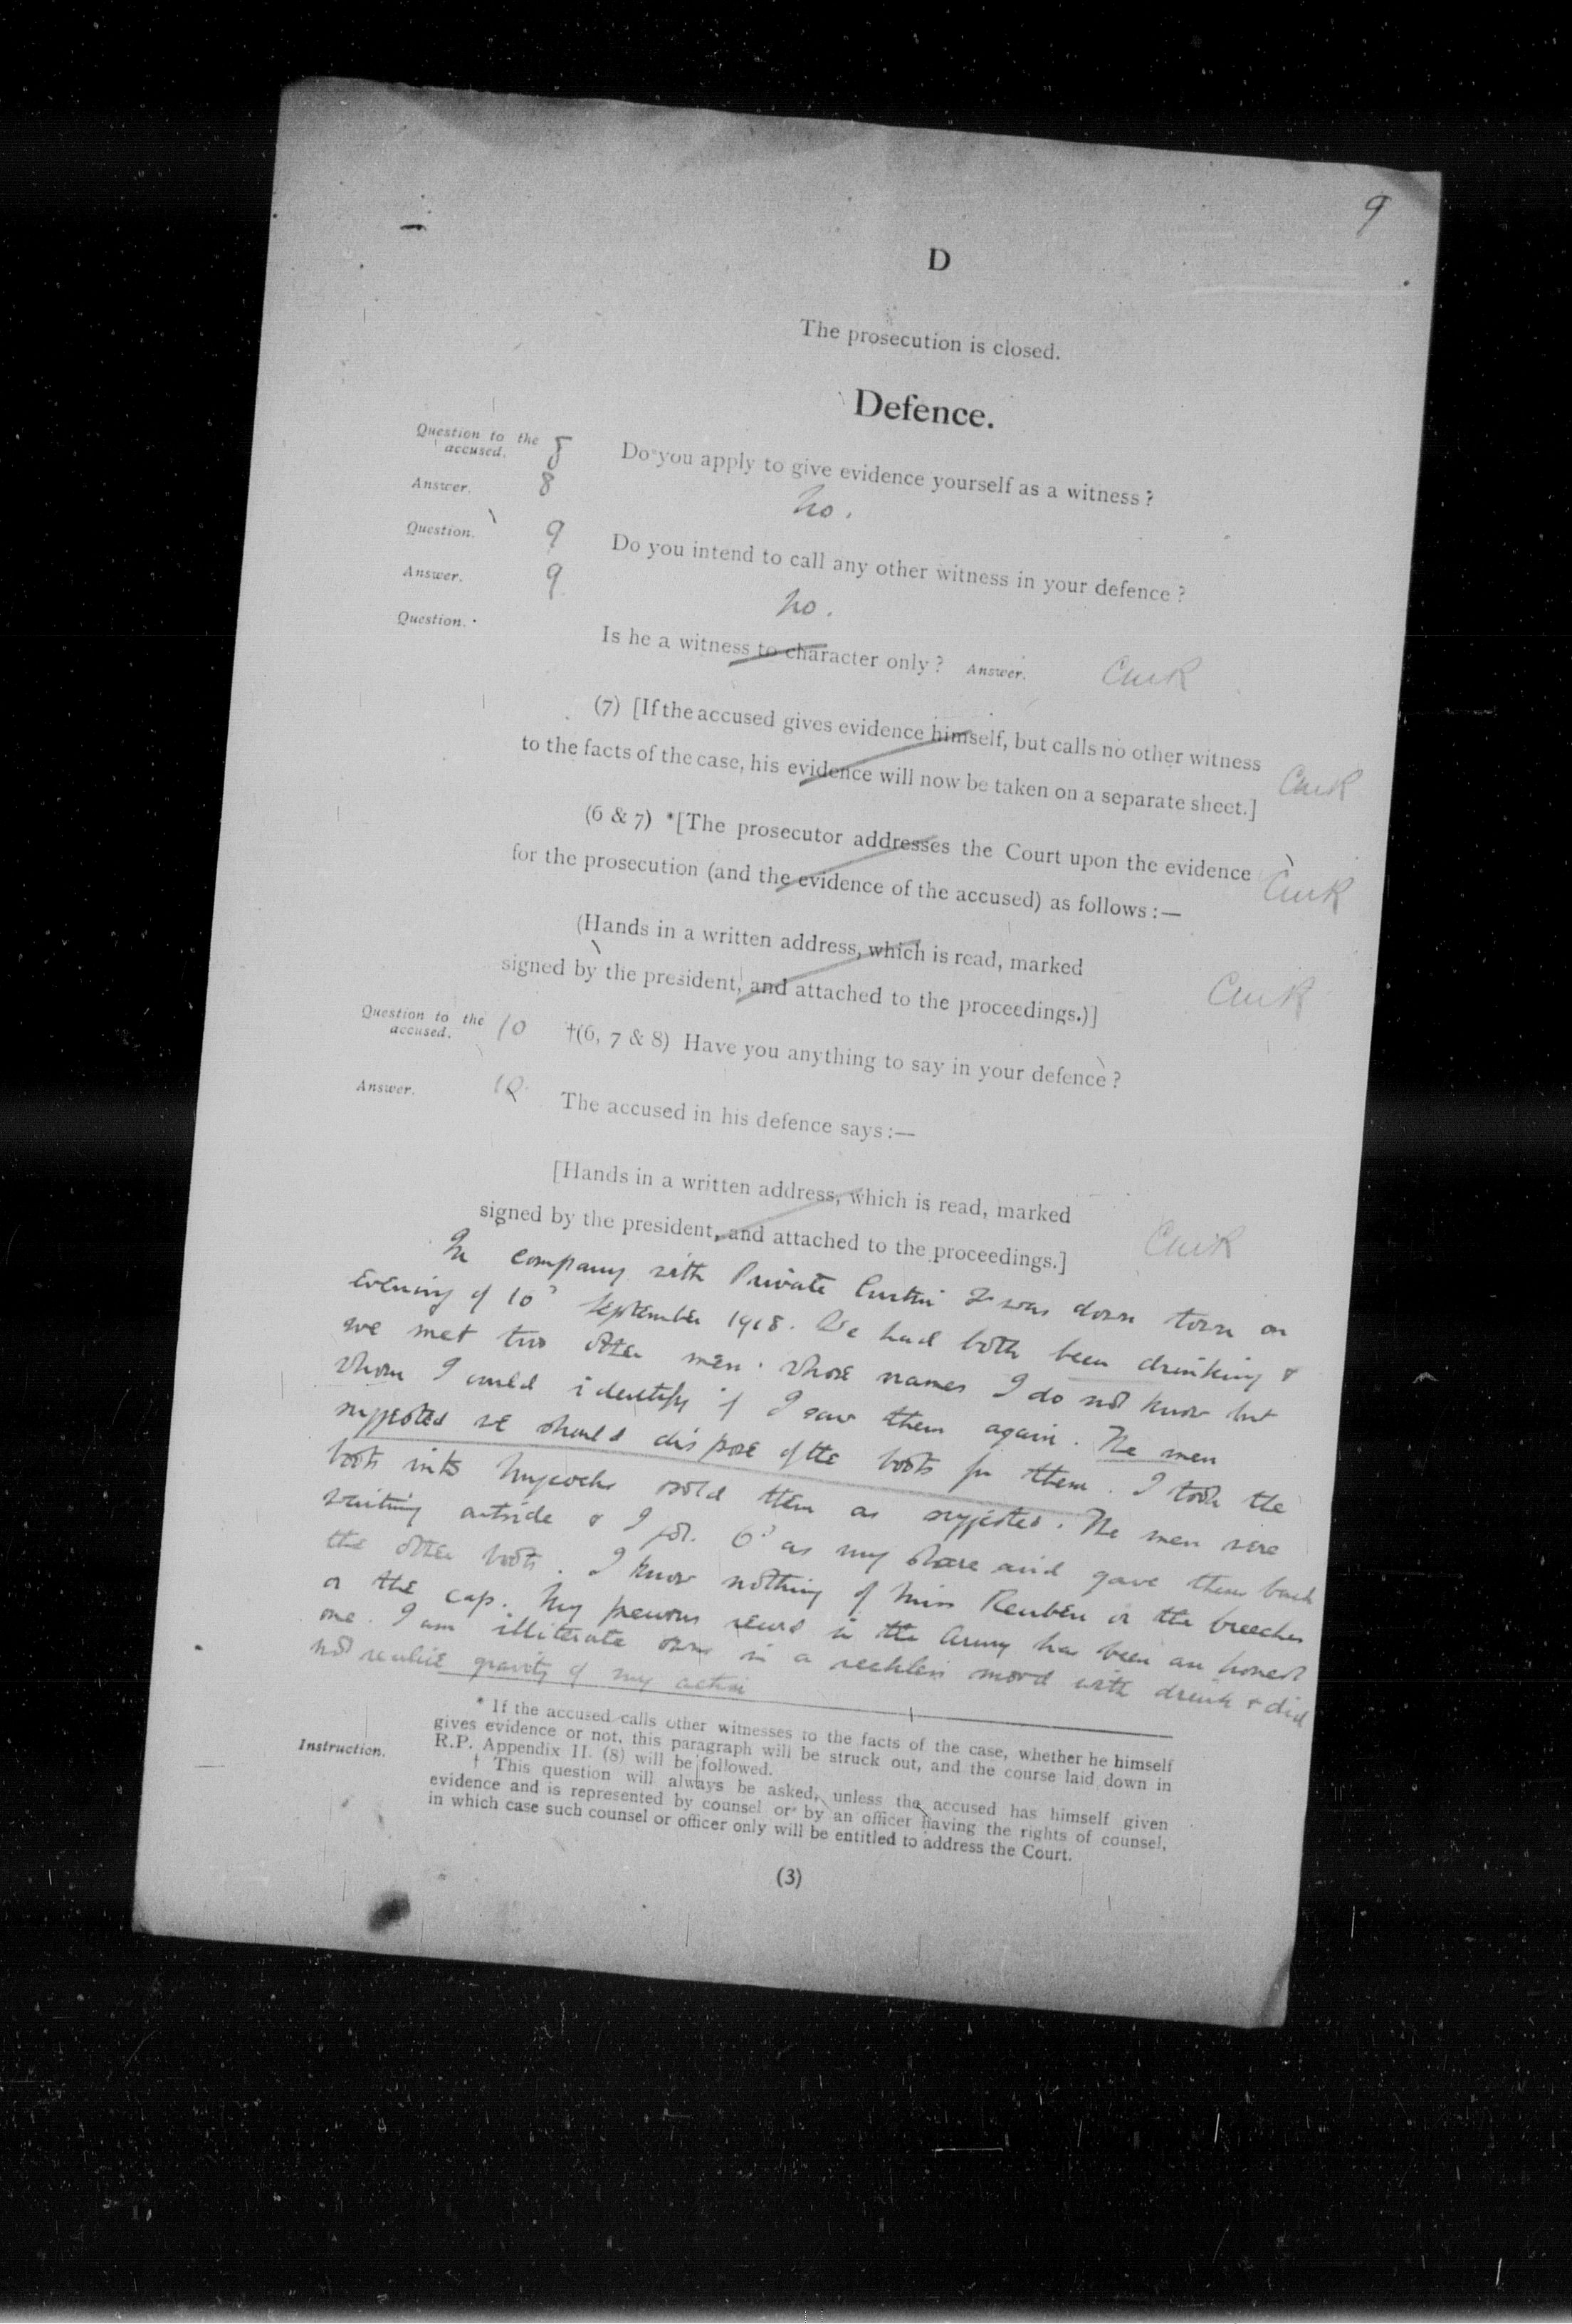 9
D
The prosecution is closed.
Defence.
Question to the accused. 8 Do you apply to give evidence yourself as a witness?
Answer. 8 No.
Question. 9 Do you intend to call any other witness in your defence?
Answer. 9 No.
Question. Is he a witness to character only? Answer.
(7) [If the accused gives evidence himself, but calls no other witness
to the facts of the case, his evidence will now be taken on a separate sheet.]
(6 & 7) *[The prosecutor addresses the Court upon the evidence
for the prosecution (and the evidence of the accused) as follows:—
(Hands in a written address, which is read, marked
signed by the president, and attached to the proceedings.)]
Question to the accused. 10 †(6, 7 & 8) Have you anything to say in your defence?
Answer. 10 The accused in his defence says:—
[Hands in a written address, which is read, marked
signed by the president, and attached to the proceedings.]
In company with Private Curtin I was down town on
evening of 10 September 1918. We had both been drinking &
we met two other men whose names I do not know but
whom I could identify if I saw them again. The men
suggested we should dispose of the boots for them. I took the
boots into & sold them as suggested. The men were
waiting outside & I got 6 as my share and gave them back
the other boots. I know nothing of Miss Reuben or the breeches
or the cap. My previous record in the Army has been an honest
one. I am illiterate & was in a reckless mood with drink & did
not realise gravity of my action
* If the accused calls other witnesses to the facts of the case, whether he himself
gives evidence or not, this paragraph will be struck out, and the course laid down in
Instruction. R.P. Appendix II. (8) will be followed.
† This question will always be asked, unless the accused has himself given
evidence and is represented by counsel or by an officer having the rights of counsel,
in which case such counsel or officer only will be entitled to address the Court.
(3)